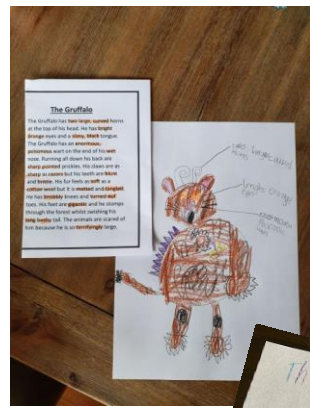 The Gruffalo
The Gruffalo has two large, curved horns
at the top of his head. He has bright
orange eyes and a slimy, black tongue.
The Gruffalo has an enormous,
poisonous wart on the end of his wet
nose. Running all down his back are
sharp pointed prickles. His claws are as
sharp as razors but his teeth are blunt
and brittle. His fur feels as soft as a
cotton wool but it is matted and tangled.
He has knobbly knees and turned out
toes. His feet are gigantic and he stomps
through the forest whilst swishing his
long bushy tail. The animals are scared of
him because he is so terrifyingly large.
two large
orange
eyes
enormous
Th